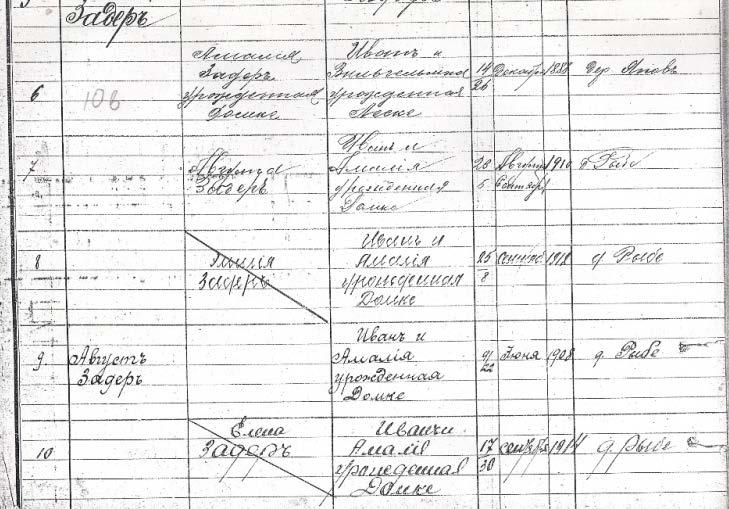 Задеръ
6
Амалія
Задеръ
урожденная
Домке
Иванъ и
Вильгельмина
урожденная
Леске
14 Декабря 1888
26
дер. Яповъ
7
Августа
Задеръ
Иванъ и
Амалія
урожденная
Домке
20 Августа 1910
5 Сентября
8
Задеръ
Иванъ и
Амалія
урожденная
Домке
25
8
д. Рыбе
9.
Августъ
Задеръ
Иванъ и
Амалія
урожденная
Домке
9 Іюня 1908
22
д. Рыбе
10
Елена
Задеръ
Иванъ и
Амалія
урожденная
Домке
17 сентября 1914
30
д. Рыбе